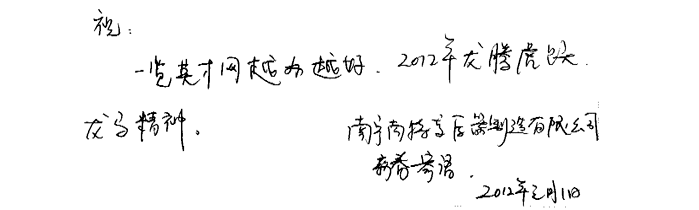 祝：
一览英才网越办越好．2012年龙腾虎跃．
龙马精神。
南宁南特 压器制造有限公司
新春寄语．
2012年2月1日